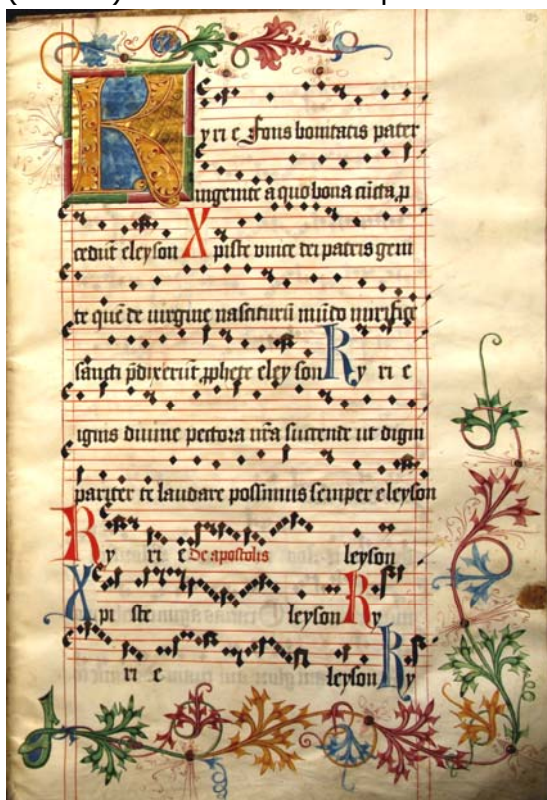 K yri e Fons bonitatis pater
ingenite a quo bona cūcta ꝓ
cedūt eleyson Xpiste vnice dei patris geni
te quē de uirgine nasciturū mūdo mirifice
sancti p̄dixerūt ꝓphete eley son Ky ri e
ignis diuine pectora nr̄a succende ut digni
pariter te laudare possimus semper eleyson
Ky ri e De apostolis leyson
Xpi ste leyson Ky
ri e leyson Ky